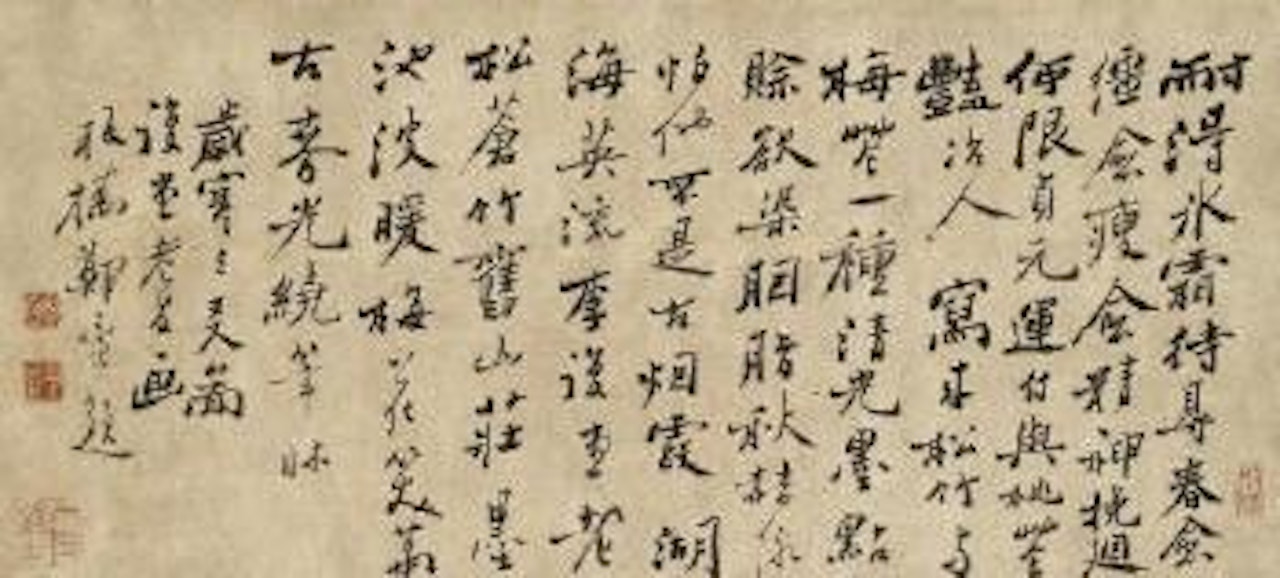 耐得冰霜待得春愈
癯愈瘦愈精神挽迴
何限貞元運付與桃花
豔冶人 寫來松竹与
梅花一種清光墨點
賒欲染胭脂秋
怕他不是古烟霞 湖
海英流
松蒼竹舊山莊墨
沈波暖梅花笑
古春光繞筆牀
歲寒三友圖
復堂老友画
板橋鄭燮題